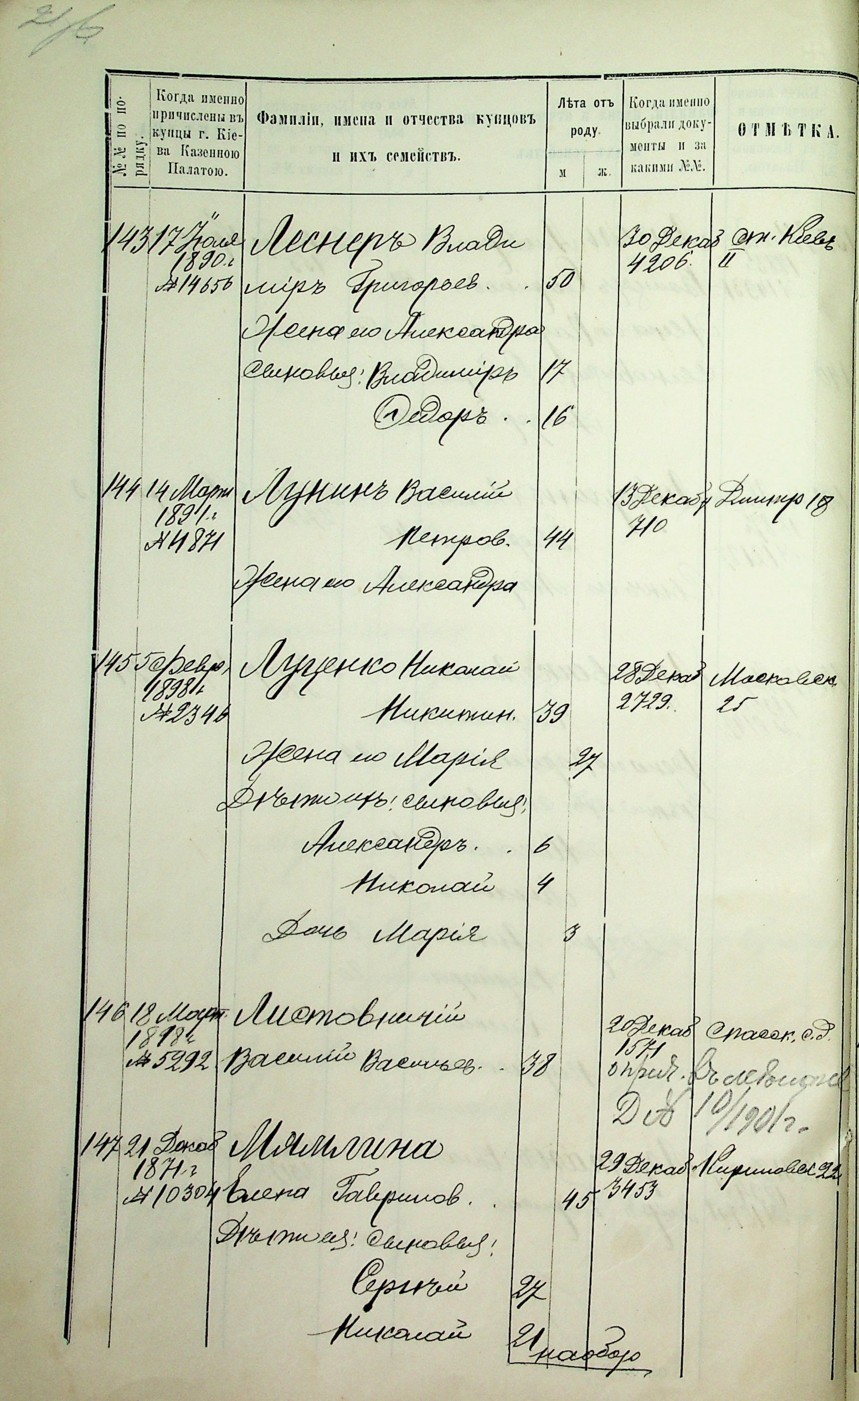 №№ по по-
рядку.
Когда именно
причислены въ
купцы г. Кіе-
ва Казенною
Палатою.
Фамиліи, имена и отчества купцовъ
и ихъ семействъ.
Лѣта отъ
роду.
м
ж.
Когда именно
выбрали доку-
менты и за
какими №№.
ОТМѢТКА.
143 17 Іюля Леснеръ Влади 30 Декаб ст. Кіевъ
1890 г 4206. II
№ 14656 міръ Григорьев. . 50
Жена его Александра
сыновья: Владиміръ 17
Ѳедоръ . . 16
144 14 Марта Лунинъ Василій 13 Декаб Дмитр 18
1891 г 710
№ 1871 Петров. 44
Жена его Александра
145 5 Февр, Луценко Николай 28 Декаб Московск.
1898 г 2729. 25
№ 2346 Никитин. 39
Жена его Марія 27
Дѣти ихъ: сыновья:
Александръ. . 6
Николай 4
Дочь Марія 3
146 18 Март. Листовничій 20 Декаб Спасск. с.д.
1898 г 1571
№ 5292 Василій Васильев. . 38 о прич.
10/1901 г.
147 21 Декаб Мямлина 29 Декаб Кириловск 22
1871 г 3453
№ 10304 Елена Гаврилов. . 45
Дѣти ея: сыновья:
Сергѣй 27
Николай 21
наобор